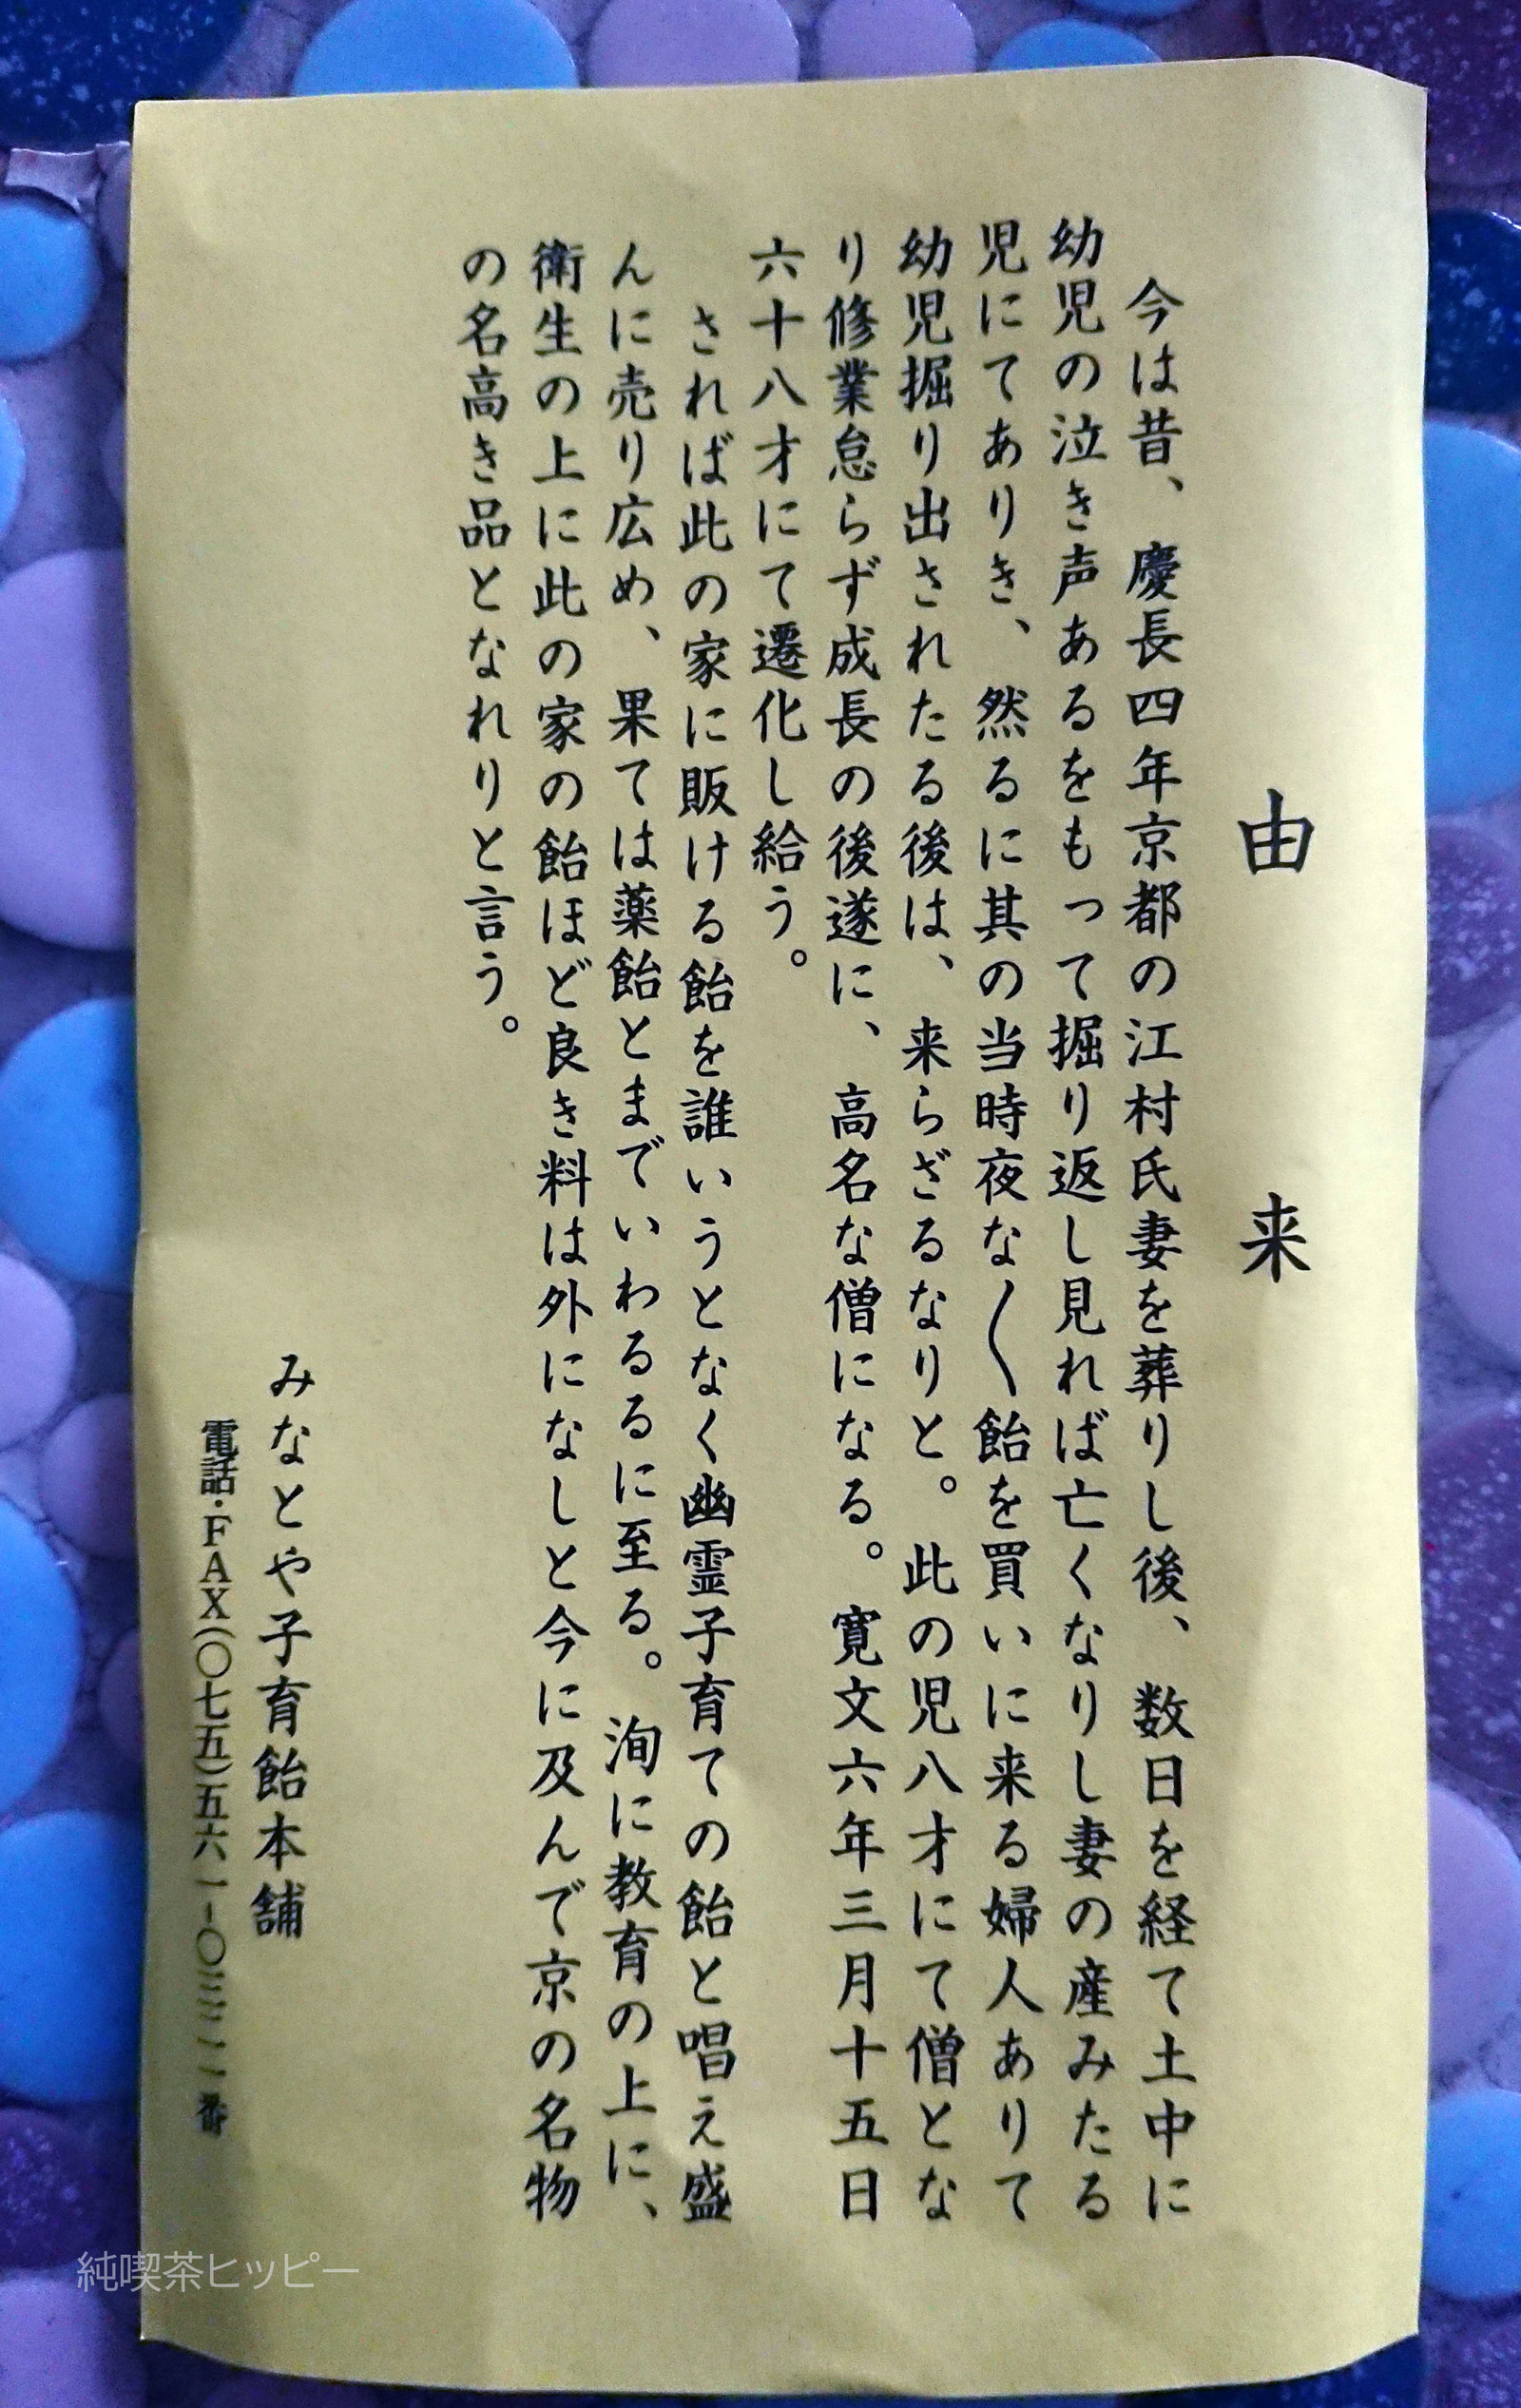 由来
今は昔、慶長四年京都の江村氏妻を葬りし後、数日を経て土中に
幼児の泣き声あるをもって掘り返し見れば亡くなりし妻の産みたる
児にてありき、然るに其の当時夜な〱飴を買いに来る婦人ありて
幼児掘り出されたる後は、来らざるなりと。此の児八才にて僧とな
り修業怠らず成長の後遂に、高名な僧になる。寛文六年三月十五日
六十八才にて遷化し給う。
されば此の家に販ける飴を誰いうとなく幽霊子育ての飴と唱え盛
んに売り広め、果ては薬飴とまでいわるるに至る。洵に教育の上に、
衛生の上に此の家の飴ほど良き料は外になしと今に及んで京の名物
の名高き品となれりと言う。
みなとや子育飴本舗
電話・FAX(〇七五)五六一-〇三二一番
純喫茶ヒッピー